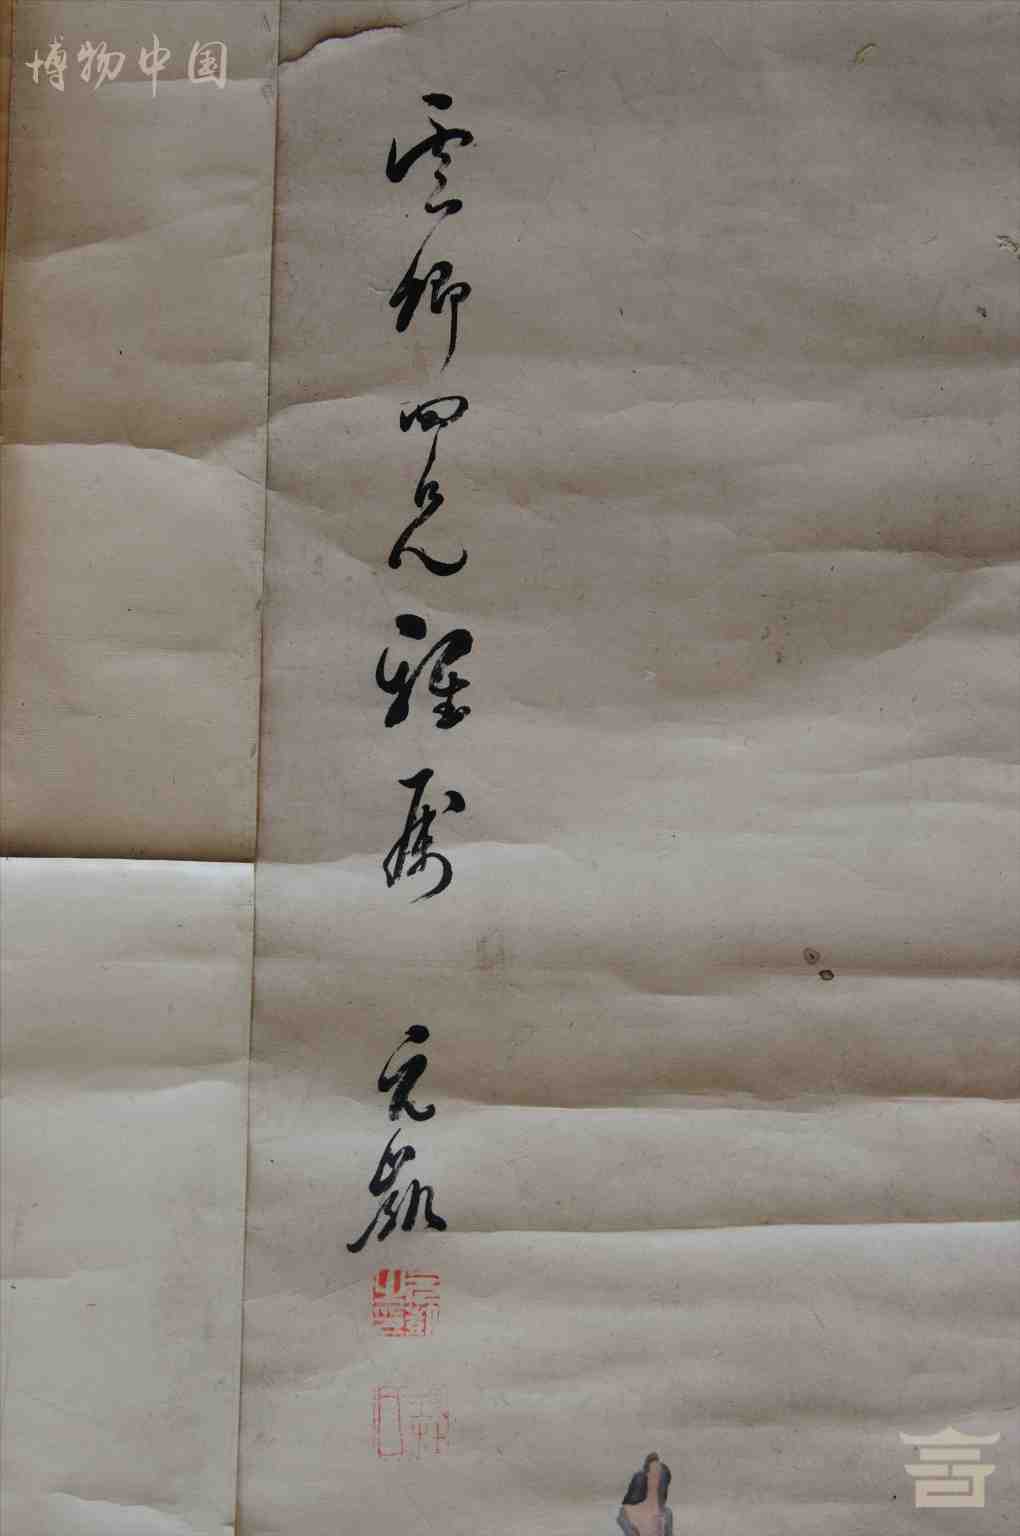 博物中国
雲卿四兄雅屬
元凱